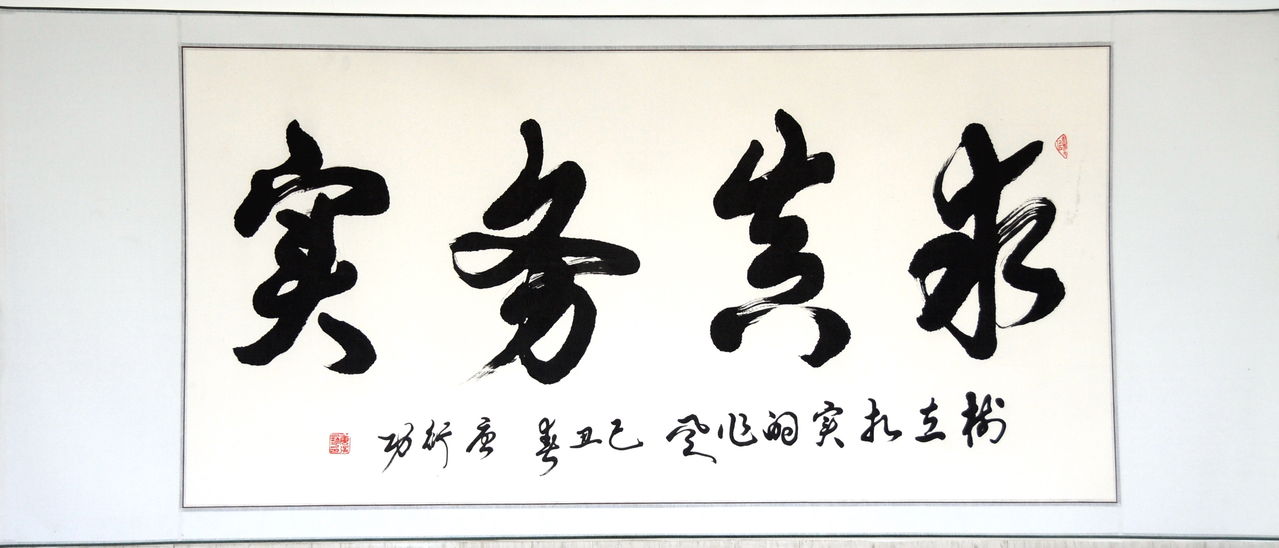 求真务实
树立扎实的作风 己丑春 唐衍功